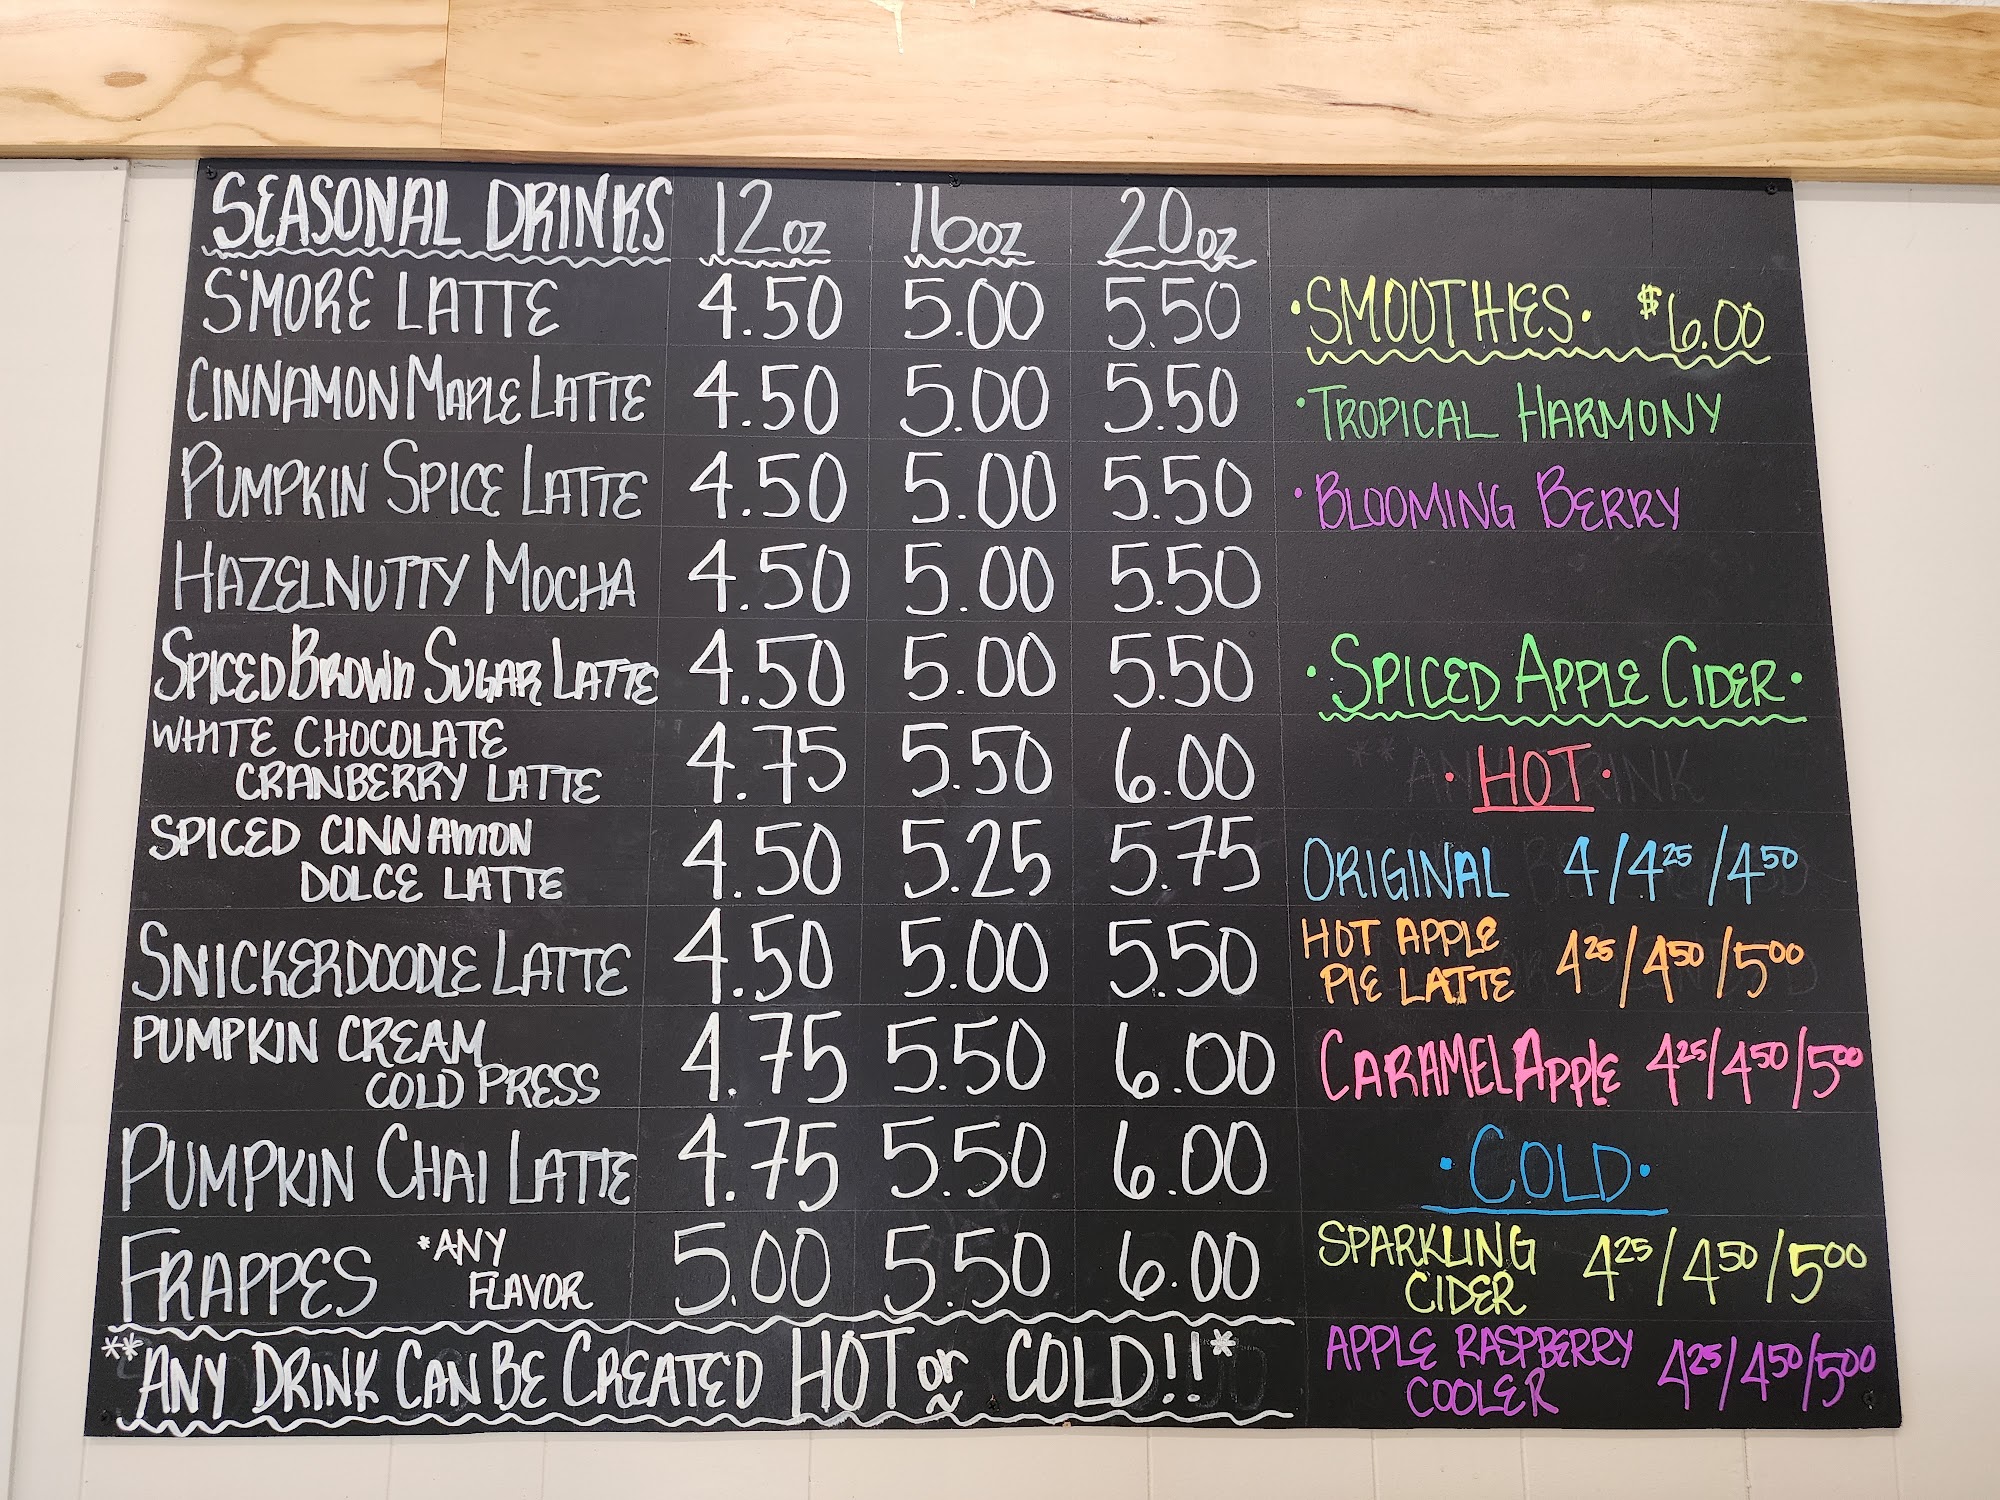 SEASONAL DRINKS 12oz 16oz 20oz
S'MORE LATTE 4.50 5.00 5.50
CINNAMON MAPLE LATTE 4.50 5.00 5.50
PUMPKIN SPICE LATTE 4.50 5.00 5.50
HAZELNUTTY MOCHA 4.50 5.00 5.50
SPICED BROWN SUGAR LATTE 4.50 5.00 5.50
WHITE CHOCOLATE
CRANBERRY LATTE 4.75 5.50 6.00
SPICED CINNAMON
DOLCE LATTE 4.50 5.25 5.75
SNICKERDOODLE LATTE 4.50 5.00 5.50
PUMPKIN CREAM
COLD PRESS 4.75 5.50 6.00
PUMPKIN CHAI LATTE 4.75 5.50 6.00
FRAPPES *ANY
FLAVOR 5.00 5.50 6.00
**ANY DRINK CAN BE CREATED HOT or COLD!!*
•SMOOTHIES• $6.00
•TROPICAL HARMONY
•BLOOMING BERRY
•SPICED APPLE CIDER•
•HOT•
ORIGINAL 4/4.25/4.50
HOT APPLE
PIE LATTE 4.25/4.50/5.00
CARAMEL APPLE 4.25/4.50/5.00
•COLD•
SPARKLING
CIDER 4.25/4.50/5.00
APPLE RASPBERRY
COOLER 4.25/4.50/5.00